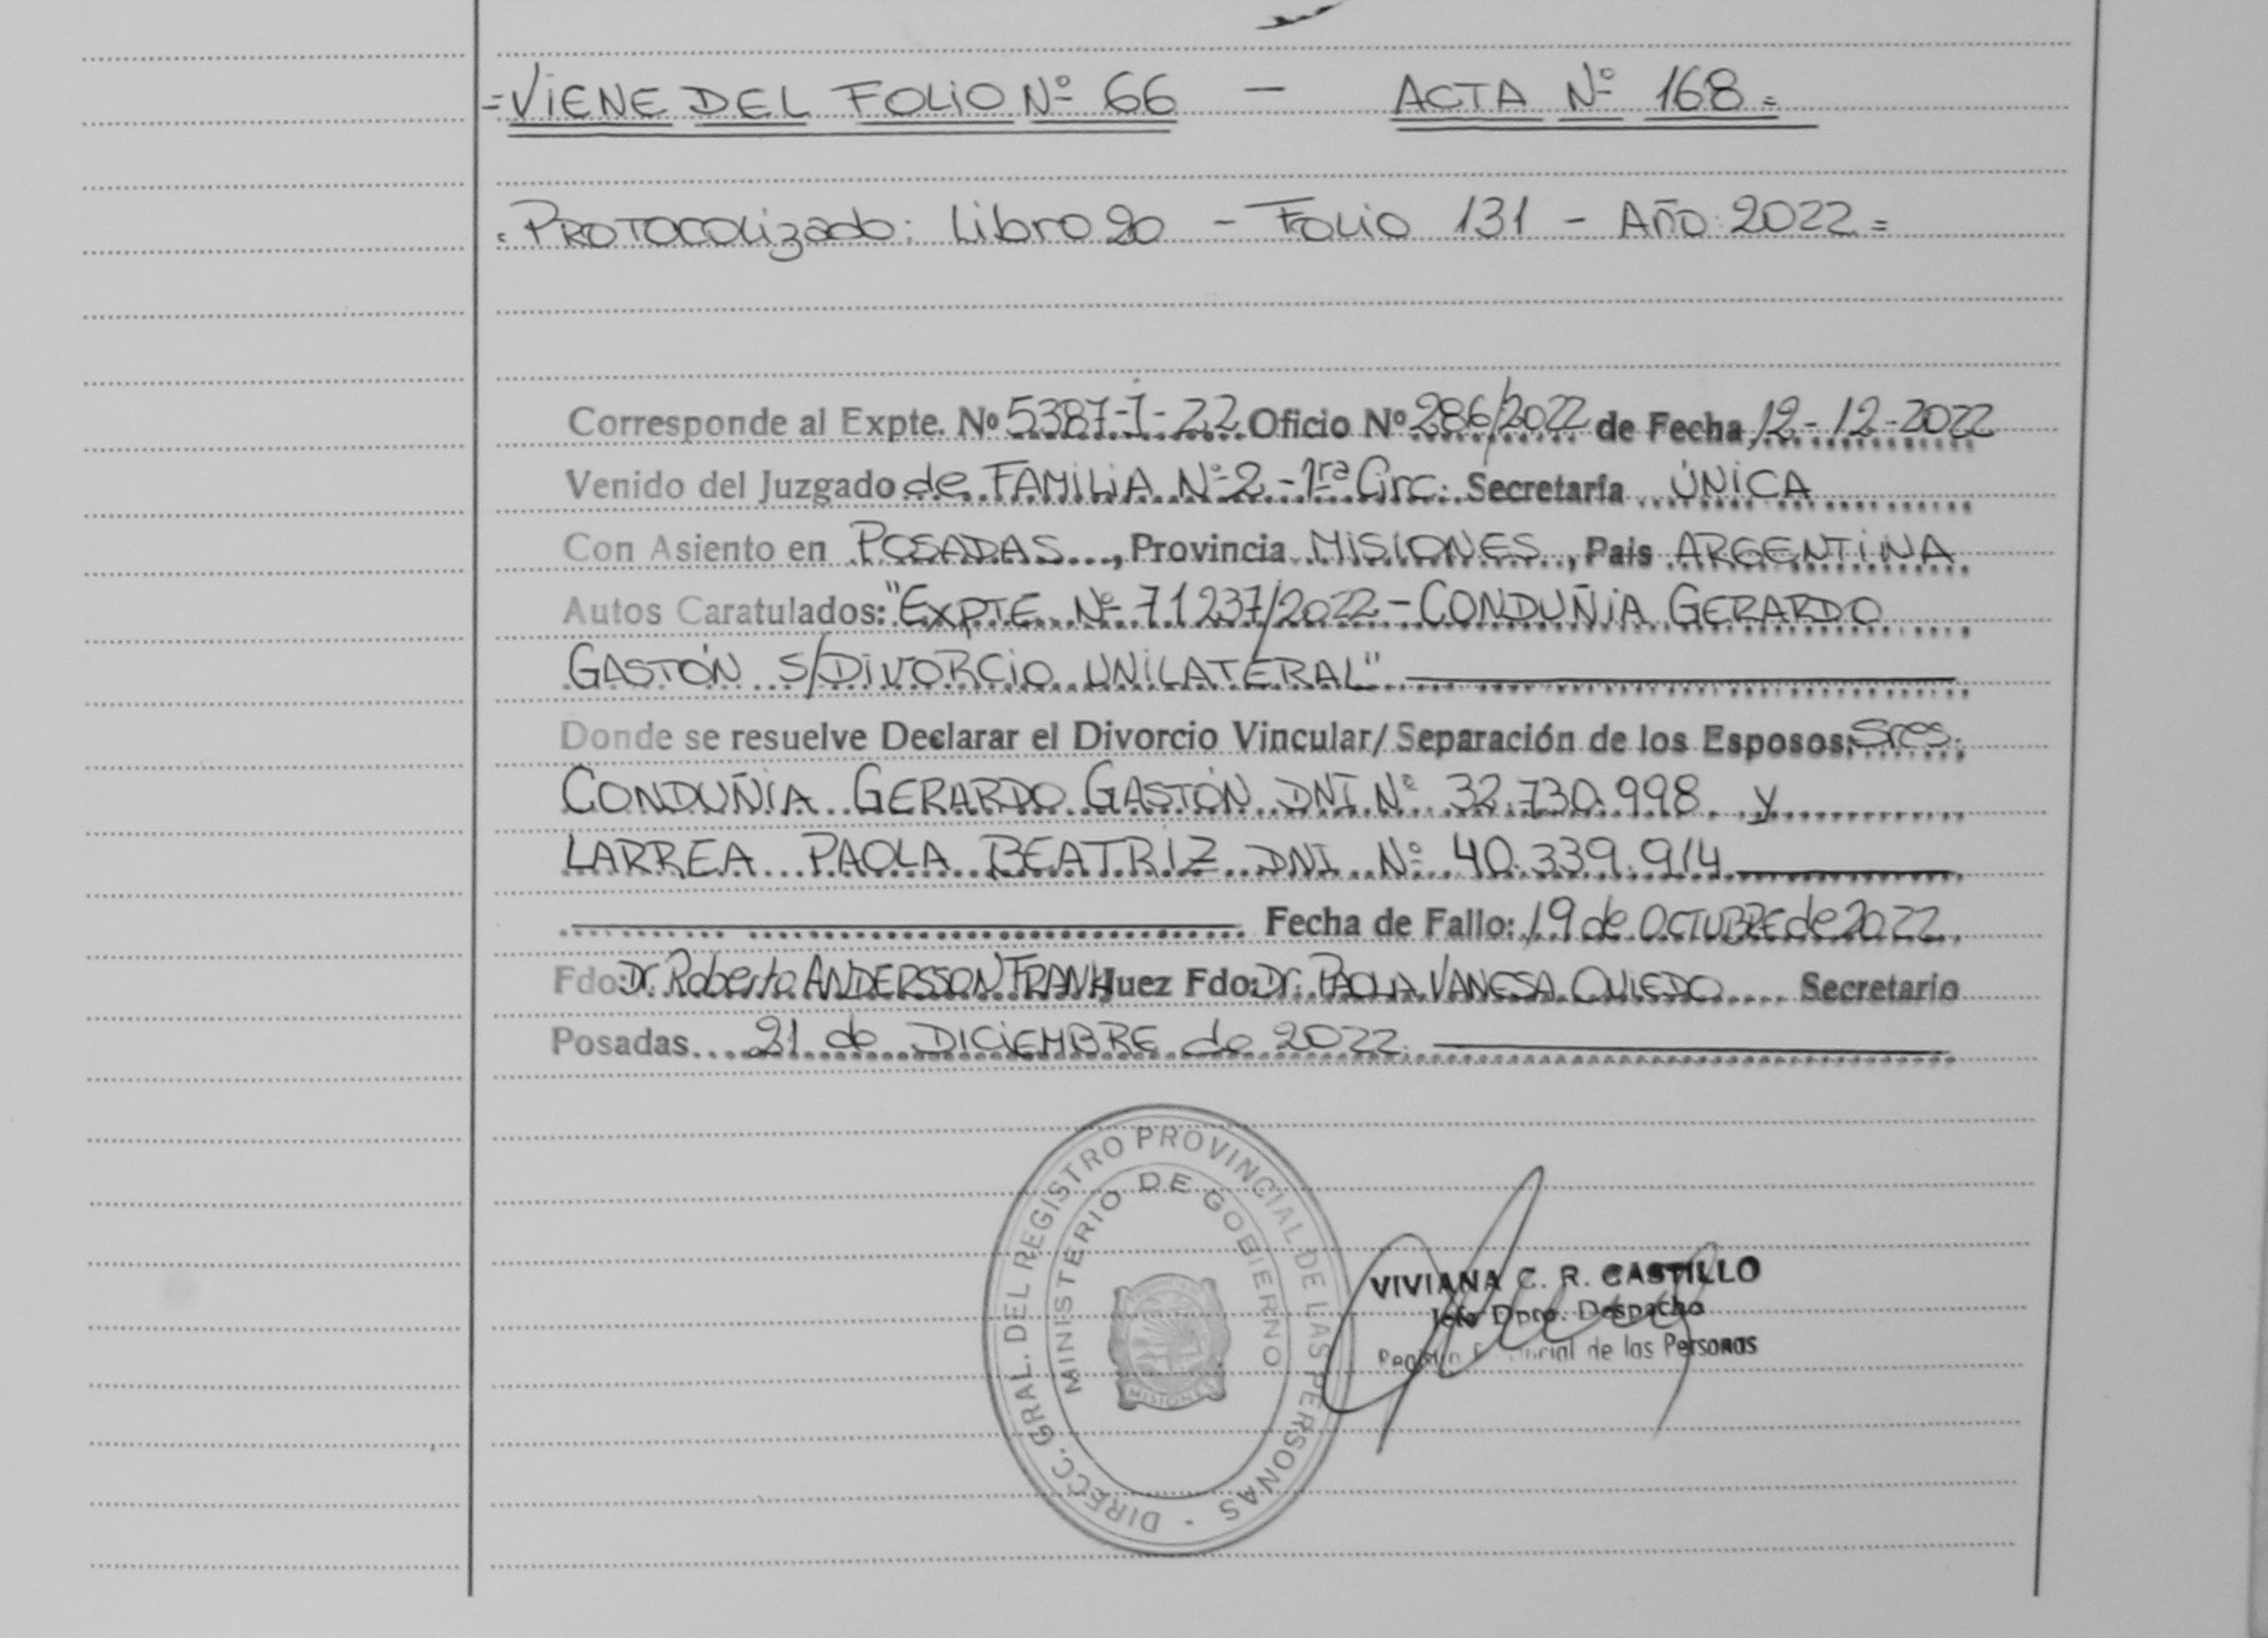 =VIENE DEL FOLIO Nº 66 - ACTA Nº 168=
= PROTOCOLIZADO: Libro 20 - FOLIO 131 - AÑO: 2022 =
Corresponde al Expte. Nº 5387-I-22 Oficio Nº 286/2022 de Fecha 12-12-2022
Venido del Juzgado de FAMILIA Nº 2 - 1ra Circ. Secretaría ÚNICA
Con Asiento en POSADAS, Provincia MISIONES, Pais ARGENTINA
Autos Caratulados: "EXPTE Nº 71237/2022 - CONDUÑIA GERARDO
GASTÓN S/DIVORCIO UNILATERAL"
Donde se resuelve Declarar el Divorcio Vincular/ Separación de los Esposos: Sres.
CONDUÑIA GERARDO GASTÓN DNI Nº 32.730.998 y
LARREA PAOLA BEATRIZ DNI Nº 40.339.914
Fecha de Fallo: 19 de OCTUBRE de 2022
Fdo: Dr. Roberto ANDERSSON FRANK Juez Fdo: Dr. PAOLA VANESA OVIEDO Secretario
Posadas 21 de DICIEMBRE de 2022.
DIRECC. GRAL. DEL REGISTRO PROVINCIAL DE LAS PERSONAS -
MINISTERIO DE GOBIERNO
MISIONES
VIVIANA C. R. CASTILLO
Jefe Dpto. Despacho
Registro Provincial de las Personas